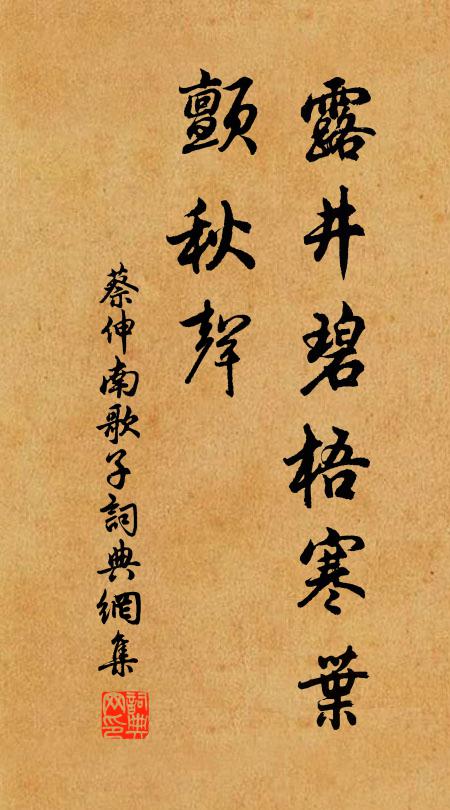 露井碧梧寒葉
顫秋聲
蔡伸南歌子詞典網集
詞典
网印